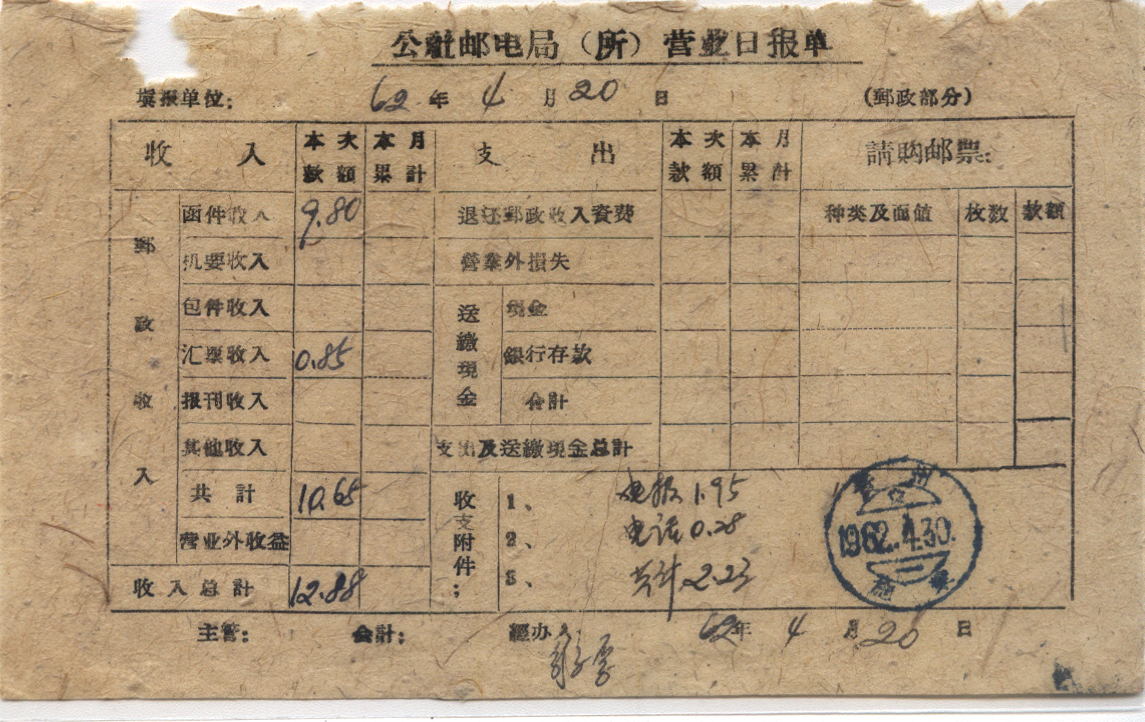 公社邮电局（所）营业日报单
填报单位： 62年 4月 20日 （郵政部分）
收入 本次款額 本月累計 支出 本次款額 本月累計 請购邮票：
郵政收入 函件收入 9.80 退还郵政收入資费 种类及面値 枚数 款額
机要收入 营業外損失
包件收入 送繳現金 現金
汇票收入 0.85 銀行存款
报刊收入 合計
其他收入 支出及送繳現金总計
共計 10.65 收支附件： 1、 电报 1.95
营业外收益 2、 电话 0.28
收入总計 12.88 3、 共计 2.23
1962.4.30.
主管： 会計： 經办人 62年 4月 20日